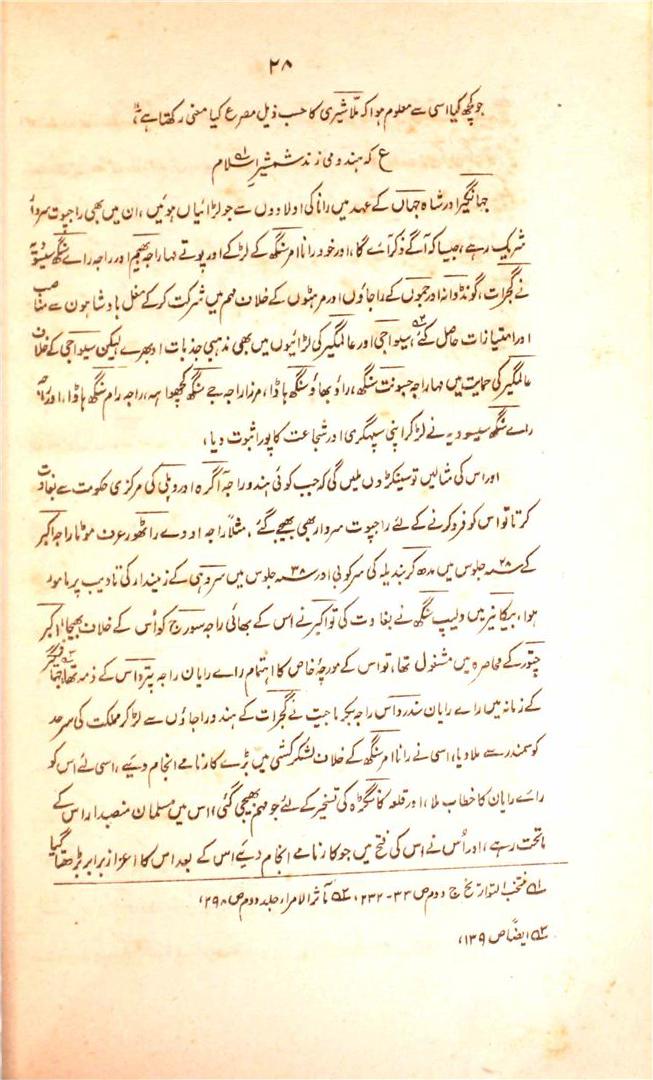 ۲۸
جو کچھ کیا اسی سے معلوم ہوا کہ ملّا شیری کا حسب ذیل مصرع کیا معنی رکھتا ہے،
ع کہ ہندو می زند شمشیرِ اسلام
جہانگیر اور شاہ جہاں کے عہد میں رانا کی اولادوں سے جو لڑائیاں ہوئیں، ان میں بھی راجپوت سردار
شریک رہے، جیسا کہ آگے ذکر آئے گا، اور خود رانا امر سنگھ کے لڑکے اور پوتے مہاراجہ بھیم اور راجہ رائے سنگھ سیسودیہ
نے گجرات، گونڈوانہ اور جموں کے راجاؤں اور مرہٹوں کے خلاف مہم میں شرکت کرکے مغل بادشاہوں سے مناصب
اور امتیازات حاصل کئے، سیواجی اور عالمگیر کی لڑائیوں میں بھی مذہبی جذبات ابھرے لیکن سیواجی کے خلاف
عالمگیر کی حمایت میں مہاراجہ جسونت سنگھ، راؤ بھاؤ سنگھ ہاڈا، مرزا راجہ جے سنگھ کچھواہہ، راجہ رام سنگھ ہاڈا، اور راجہ
رائے سنگھ سیسودیہ نے لڑ کر اپنی سپہگری اور شجاعت کا پورا ثبوت دیا،
اور اس کی مثالیں تو سینکڑوں ملیں گی کہ جب کوئی ہندو راجہ آگرہ اور دہلی کی مرکزی حکومت سے بغاوت
کرتا تو اس کو فرو کرنے کے لئے راجپوت سردار بھی بھیجے گئے، مثلاً راجہ اودے راٹھور عرف موٹا راجہ اکبر
کے ۲۸؁ جلوس میں مدھ کر بندیلہ کی سرکوبی اور ۳۸؁ جلوس میں سروہی کے زمیندار کی تادیب پر مامور
ہوا، بیکانیر میں دلیپ سنگھ نے بغاوت کی تو اکبر نے اس کے بھائی راجہ سورج کو اس کے خلاف بھیجا، اکبر
چتور کے محاصرہ میں مشغول تھا، تو اس کے مورچۂ خاص کا اہتمام رائے رایان راجہ پترداس کے ذمہ تھا، جہانگیر
کے زمانہ میں رائے رایان سندرداس راجہ بکرماجیت نے گجرات کے ہندو راجاؤں سے لڑ کر مملکت کی سرحد
کو سمندر سے ملا دیا، اسی نے رانا امر سنگھ کے خلاف لشکر کشی میں بڑے کارنامے انجام دیئے، اسی لئے اس کو
رائے رایان کا خطاب ملا، اور قلعہ کانگڑہ کی تسخیر کے لئے جو مہم بھیجی گئی، اس میں مسلمان منصبدار اس کے
ماتحت رہے، اور اُس نے اس کی فتح میں جو کارنامے انجام دیئے اس کے بعد اس کا اعزاز برابر بڑھتا گیا
۱؎ منتخب التواریخ ج دوم ص ۳۳-۲۳۲، ۲؎ مآثر الامرا، جلد دوم ص ۲۹۸،
۳؎ ایضاً ص ۱۳۹،